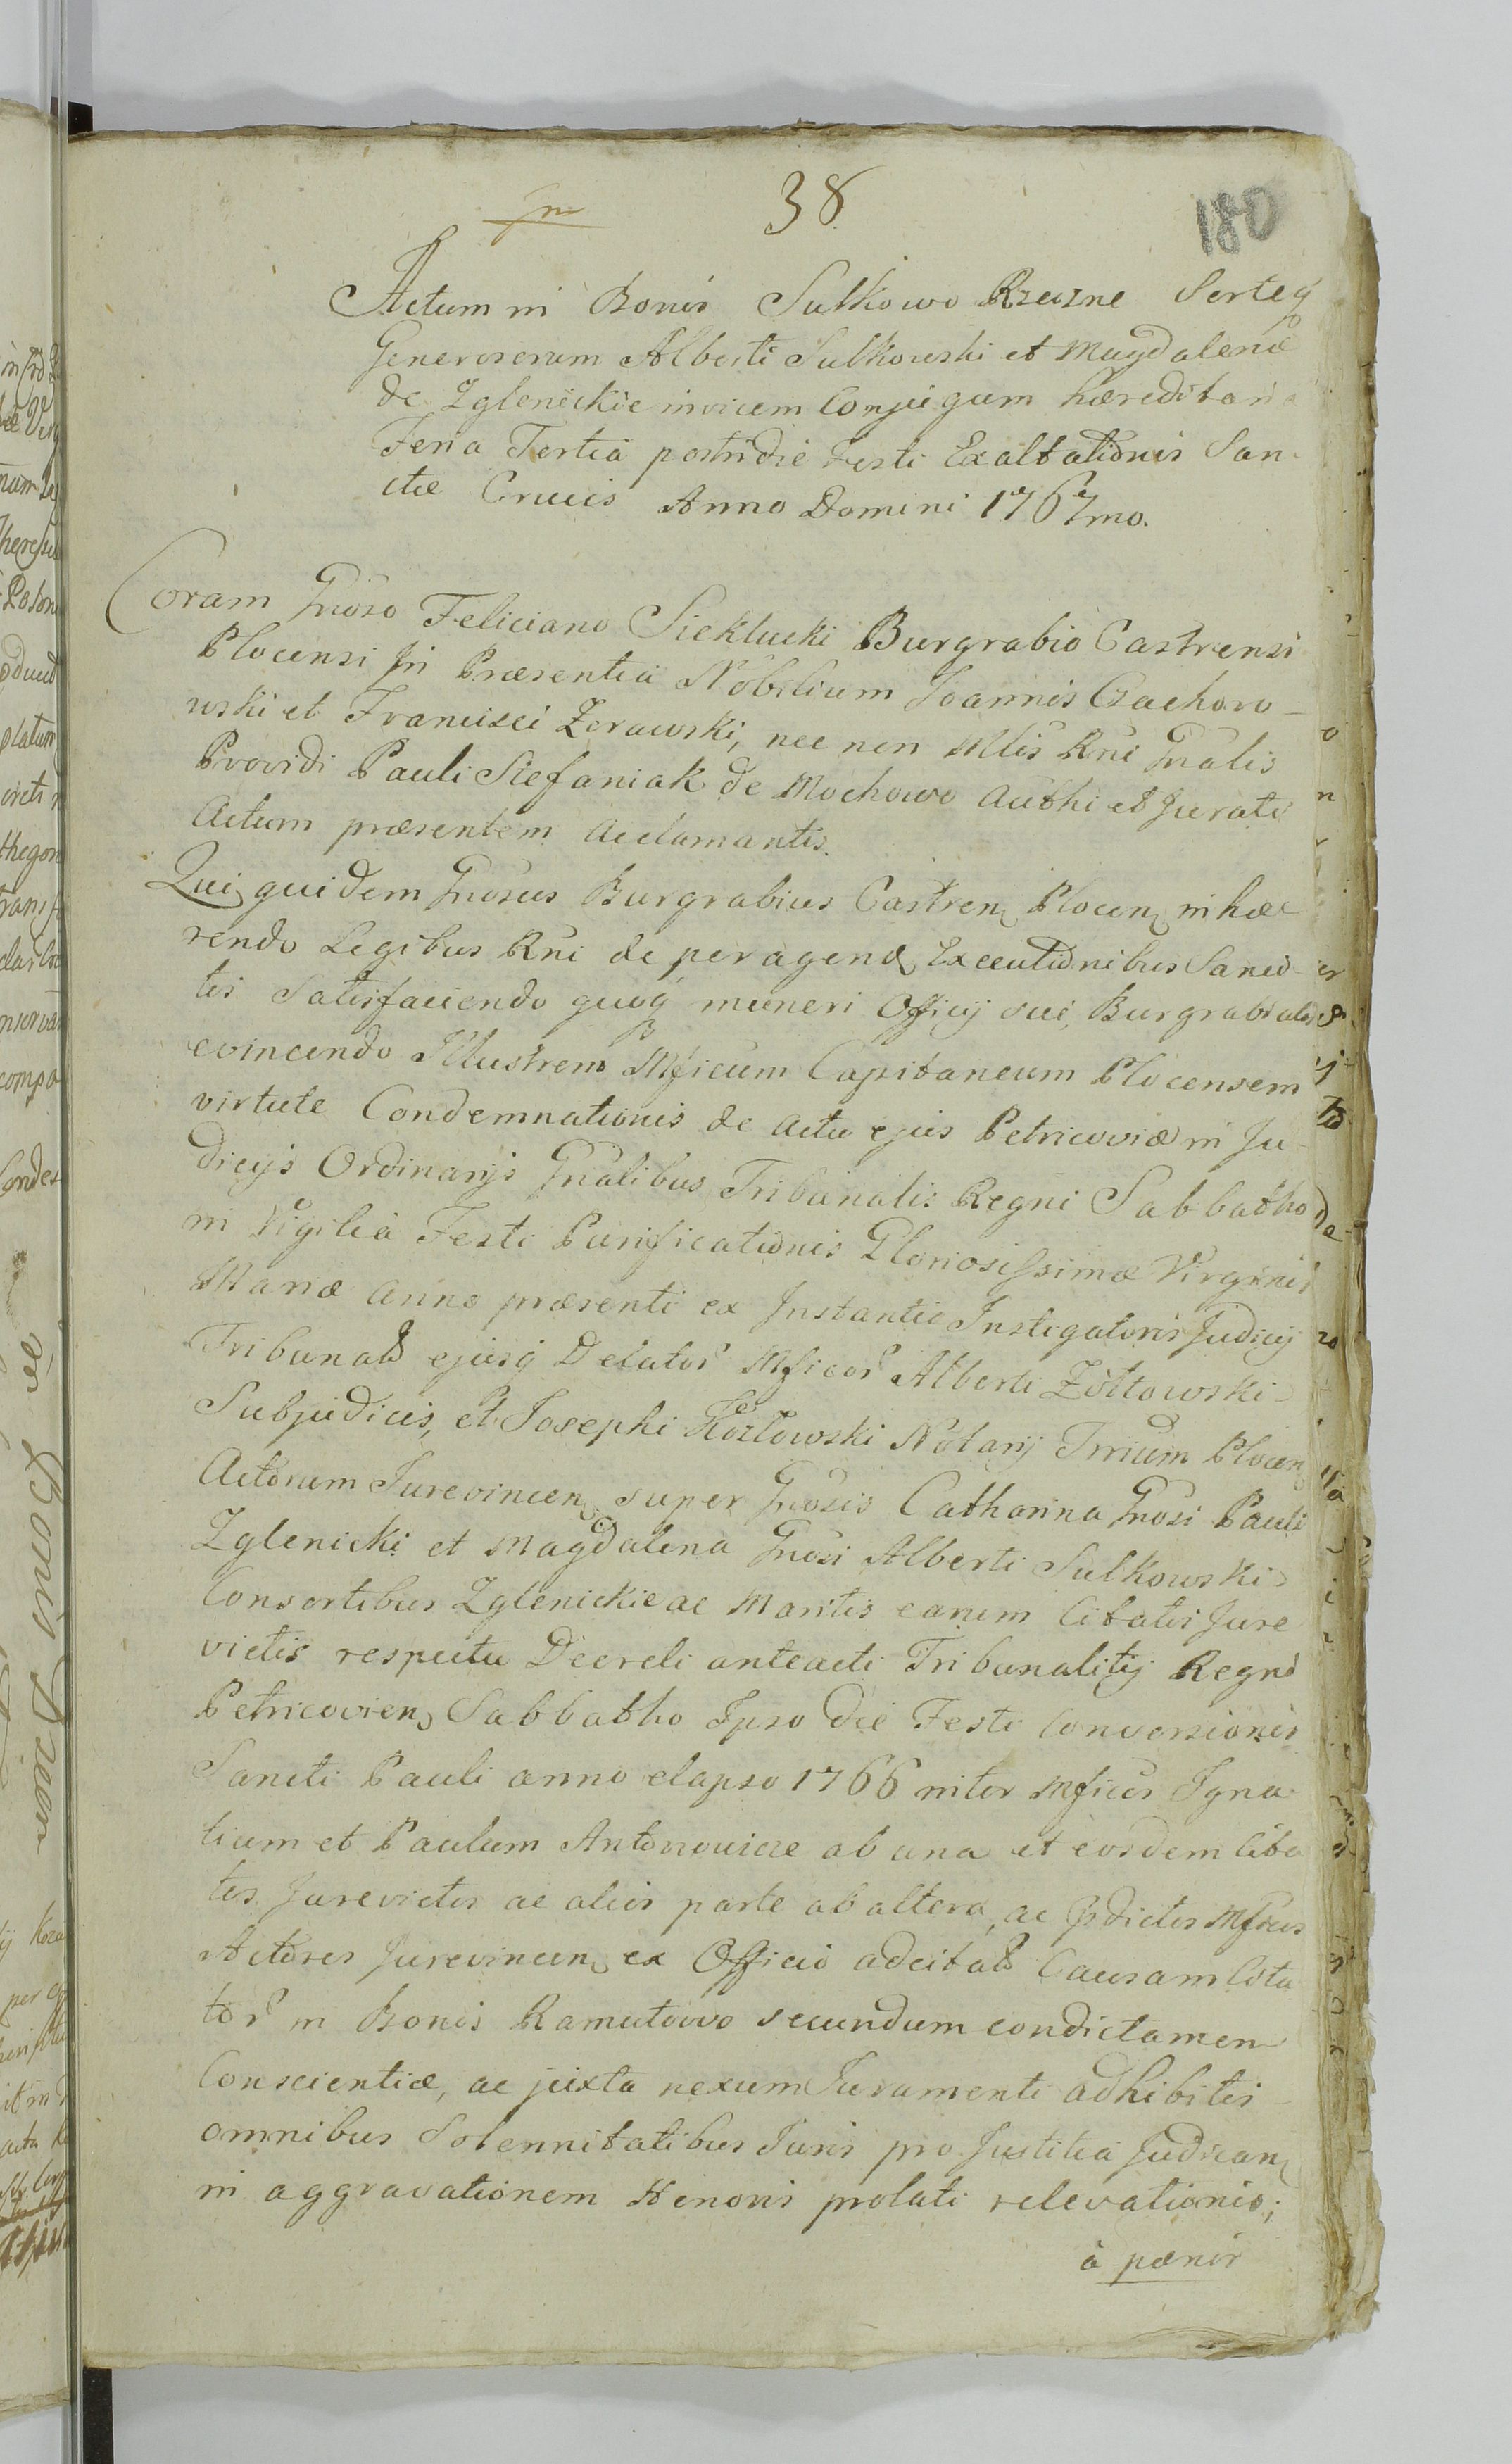 38
180
Actum in Bonis Sulkowo Rzeczne Sorteq
Generosorum Alberti Sulkowski et Magdalenæ
de Zglenickie invicem Conjugum hæreditaria
Feria Tertia postridie Festi Exaltationis San-
ctæ Crucis Anno Domini 1767mo.
Coram Gnoso Feliciano Sieklucki Burgrabio Castrensi
Plocensi In Præsentia Nobilium Joannis Czachoro-
wski et Francisci Zorawski, nec non Mlis Rni Gnalis
Providi Pauli Stefaniak de Mochowo Authi et Jurati
Actum præsentem Acclamantis.
Qui quidem Gnosus Burgrabius Castren Plocen inhæ
rendo Legibus Rni de peragend Executionibus Sanci-
tis Satisfaciendo quoq muneri Officij sui Burgrabialis
evincendo Illustrem Mficum Capitaneum Plocensem
virtute Condemnationis de Actu ejus Petricoviæ in Ju-
dicijs Ordinarijs Gnalibus Tribunalis Regni Sabbatho
in Vigilia Festi Purificationis Gloriosissimæ Virginis
Mariæ Anno præsenti ex Instantia Instigatoris Judicij
Tribunal ejusq Delator Mficor Alberti Zółtowski
Subjudicis, et Josephi Kozłowski Notarij Trrium Plocen
Actorum Jurevincen super Gnosis Catharina Gnosi Pauli
Zglenicki et Magdalena Gnosi Alberti Sulkowski
Consortibus Zglenickie ac Maritis earum Citatis Jure
victis respectu Decreti anteacti Tribunalitij Regni
Petricovien Sabbatho Ipso die Festi Conversionis
Sancti Pauli anno elapso 1766 inter Mficos Igna
tium et Paulum Antonowicze ab una et eosdem Cita
tos Jurevictos ac alios parte ab altera, ac pdictos Mficos
Actores Jurevincen ex Officio adcitat Causam Cita
tor in Bonis Ramutowo secundum condictamen
Conscientiæ, ac juxta nexum Juramenti adhibitis
omnibus Solennitatibus Juris pro Justitia Judican
in aggravationem Honoris prolati relevationis;
à pænis